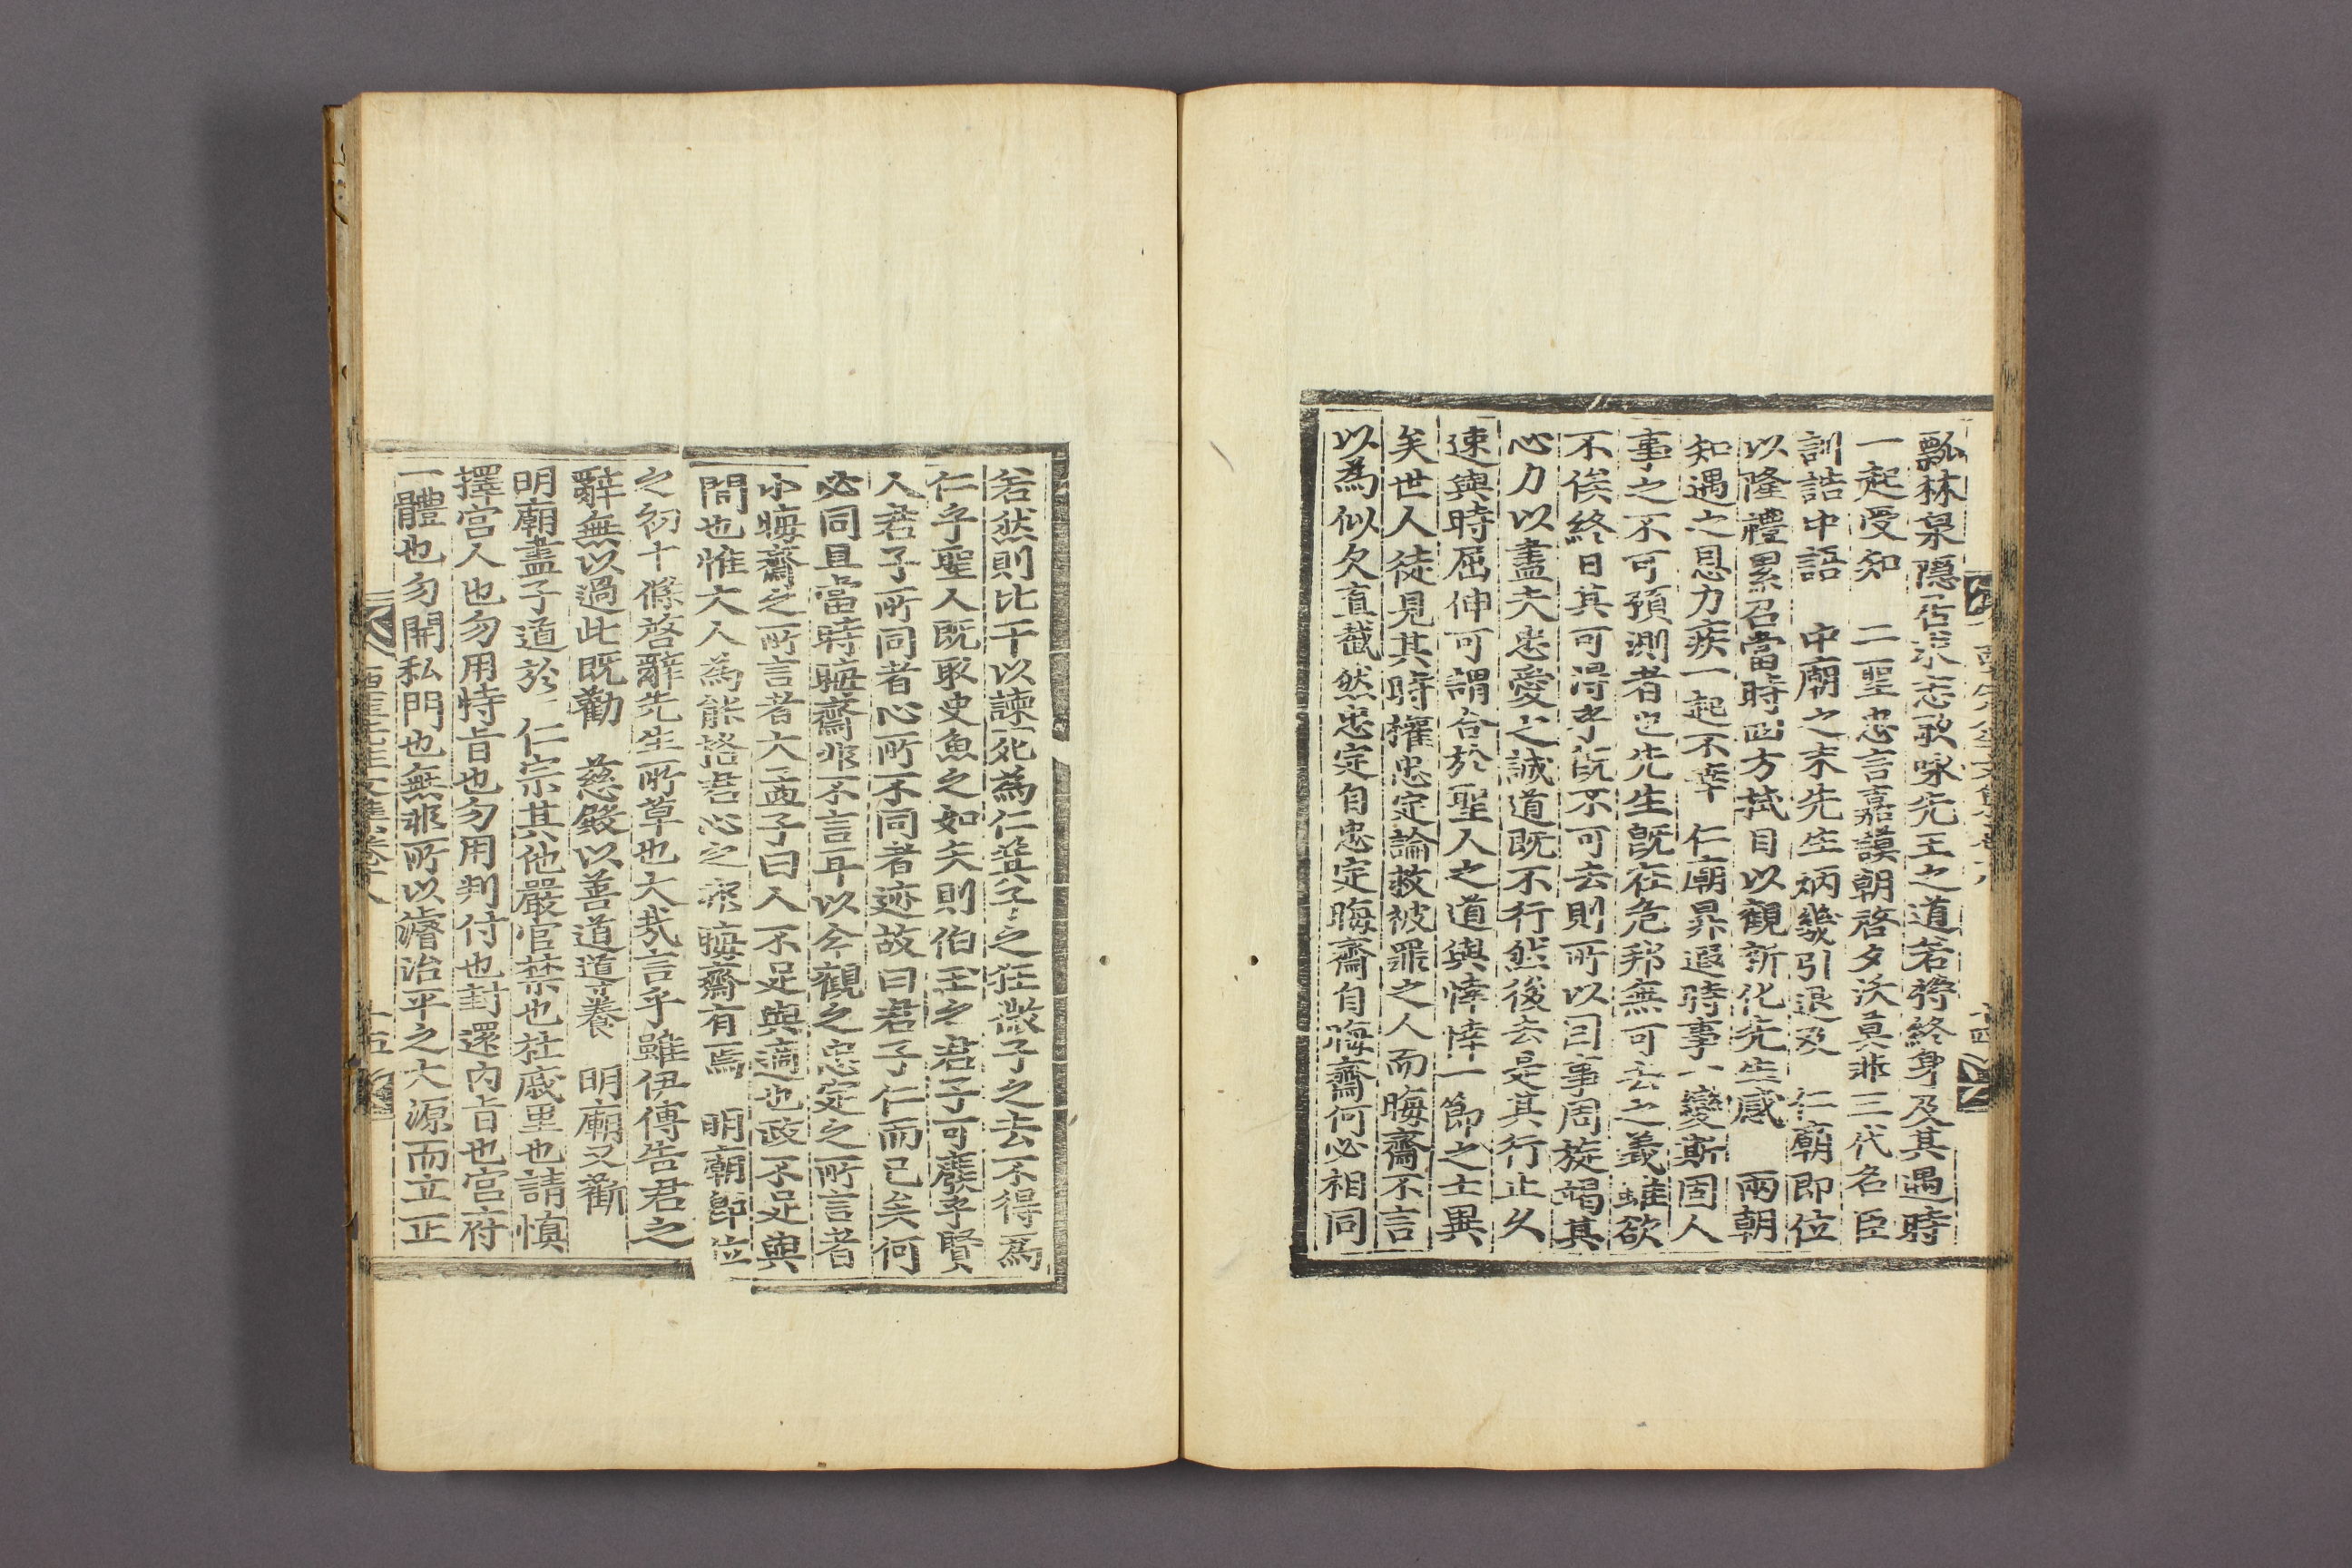 瓢林泉隱居求志歌咏先王之道若將終身及其遇時
一起受知 二聖忠言嘉謨朝啓夕沃眞非三代名臣
訓誥中語 中廟之末先生炳幾引退及 仁廟即位
以隆禮累召當時四方拭目以觀新化先生感 兩朝
知遇之恩力疾一起不幸 仁廟昇遐時事一變斯固人
事之不可預測者也先生旣在危邦無可去之義雖欲
不俟終日其可得乎旣不可去則所以因事周旋竭其
心力以盡夫忠愛之誠道既不行然後去是其行止久
速與時屈伸可謂合於聖人之道與悻悻一節之士異
矣世人徒見其時權忠定論救被罪之人而晦齋不言
以為似欠直截然忠定自忠定晦齋自晦齋何必相同
若然則比干以諫死為仁箕子之狂微子之去不得爲
仁乎聖人既取史魚之如矢則伯玉之君子可廢乎賢
人君子所同者心所不同者迹故曰君子仁而已矣何
必同且當時晦齋非不言耳以今觀之忠定之所言者
小晦齋之所言者大孟子曰人不足與適也政不足與
間也惟大人為能格君心之非晦齋有焉 明廟卽位
之初十條啓辭先生所草也大哉言乎雖伊傅告君之
辭無以過此既勸 慈殿以善道導養 明廟又勸
明廟盡子道於 仁宗其他嚴宮禁也杜戚里也請愼
擇宮人也勿用特旨也勿用判付也封還內旨也宮府
一體也勿開私門也無非所以濬治平之大源而立正
卷之八
十五